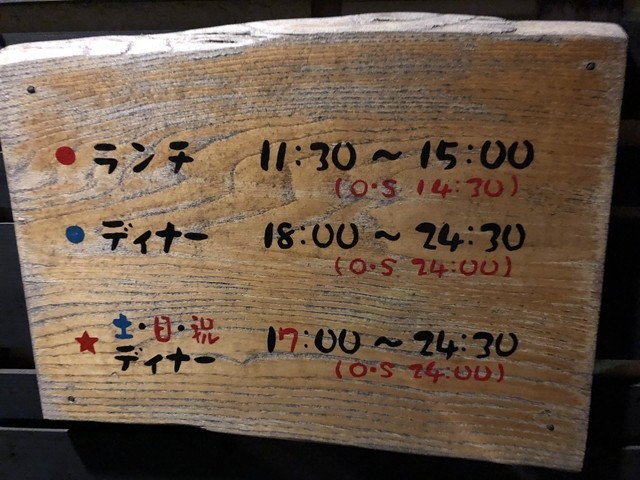 ランチ 11:30 ~ 15:00
(O・S 14:30)
ディナー 18:00 ~ 24:30
(O・S 24:00)
土・日・祝
ディナー 17:00 ~ 24:30
(O・S 24:00)